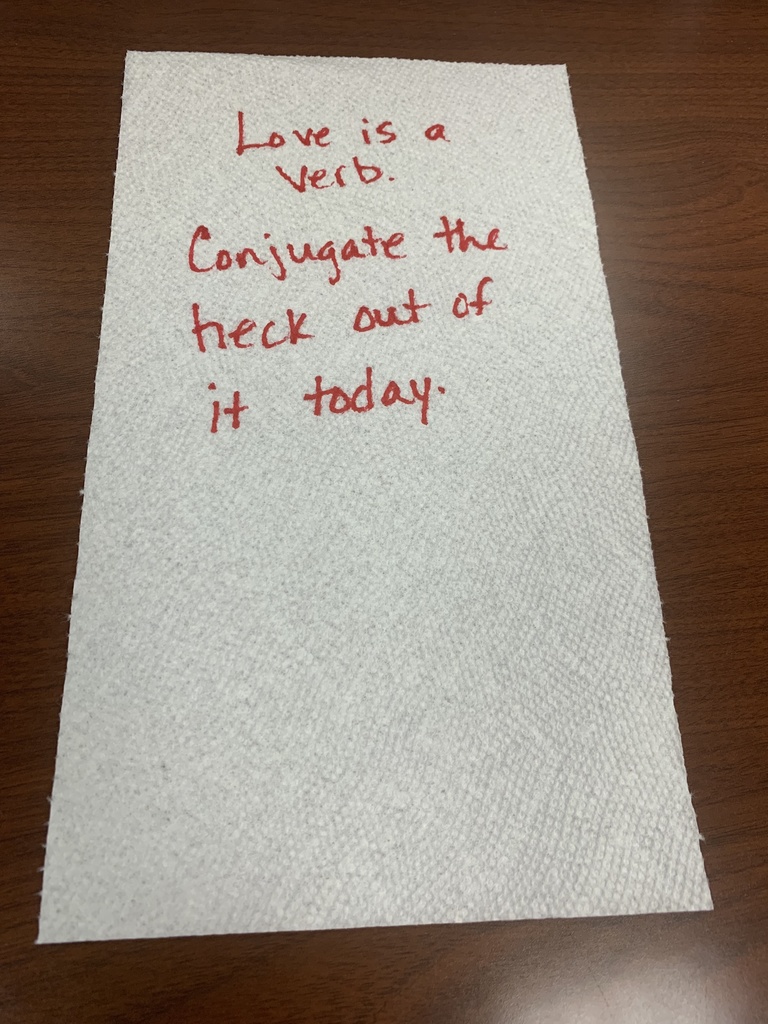 Love is a
verb.
Conjugate the
heck out of
it today.